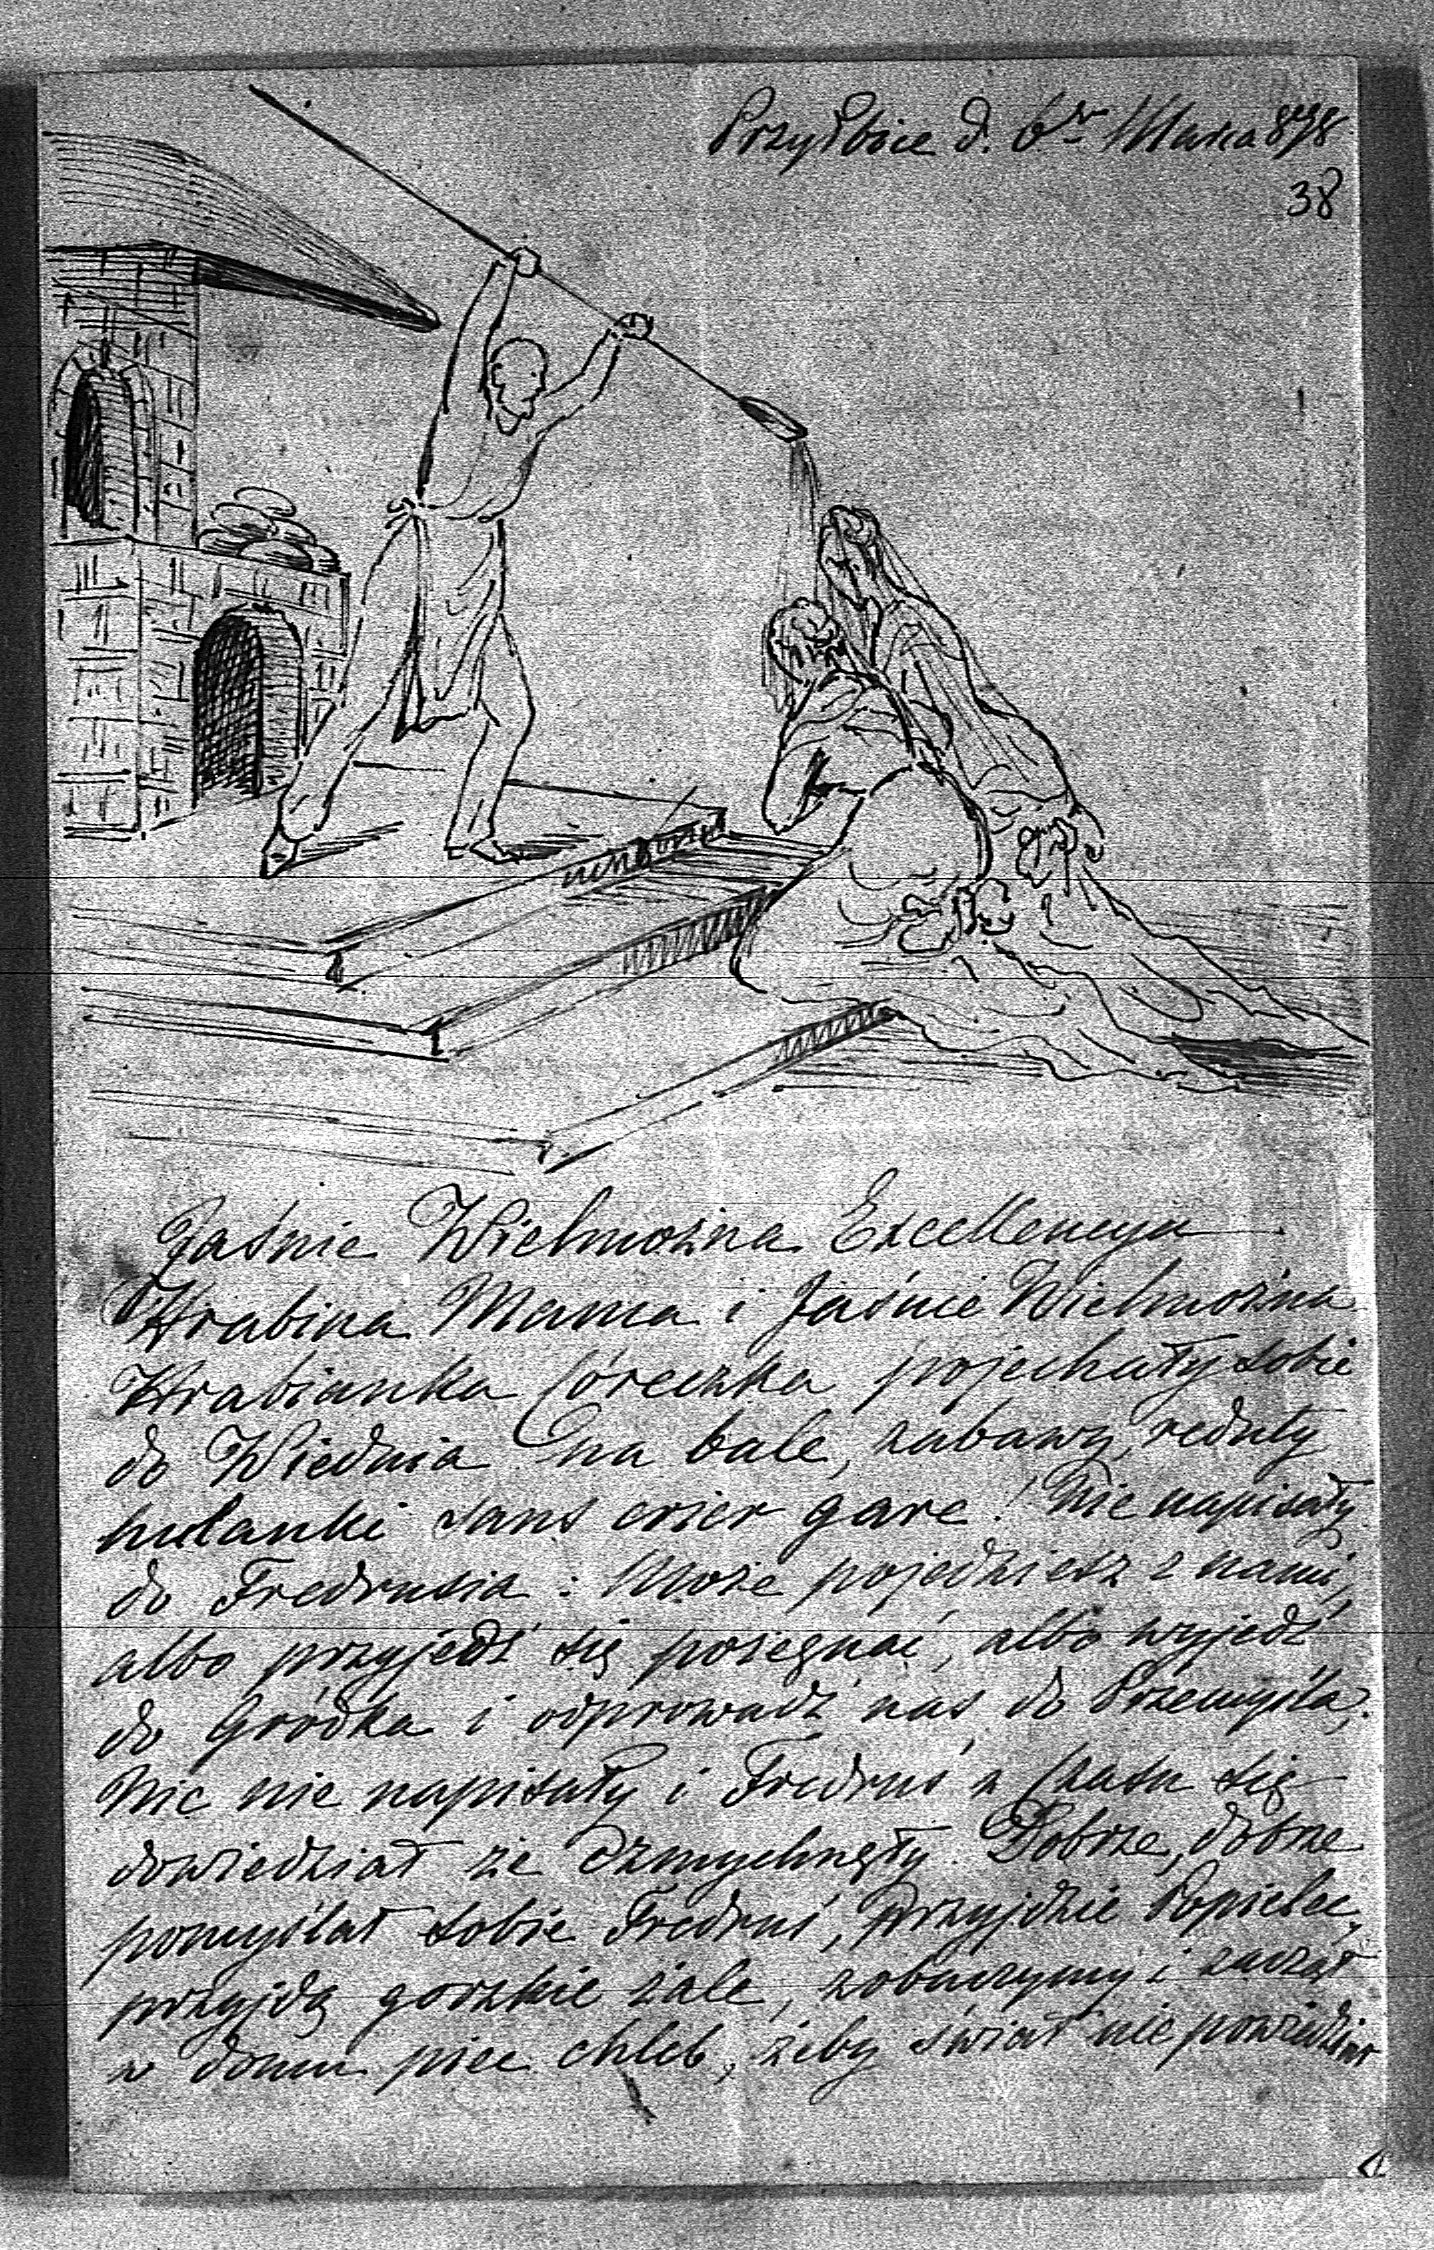 Przyłbice d. 6go Marca 878
38
Jaśnie Wielmożna Excellencya
Hrabina Mama i Jaśnie Wielmożna
Hrabianka Córeczka pojechały sobie
do Wiednia na bale, zabawy, reduty
hulanki sans crier gare! Nie napisały
do Fredrusia: Może pojedziesz z nami,
albo przyjedź się pożegnać, albo wyjedź
do Gródka i odprowadź nas do Przemyśla,
Nic nie napisały i Fredruś z Czasu się
dowiedział że czmychnęły. Dobrze, dobrze
pomyślał sobie Fredruś, Przyjdzie Popielec,
przyjdą gorzkie żale, zobaczymy i zaczął
w domu piec chleb, żeby świat nie powiedział